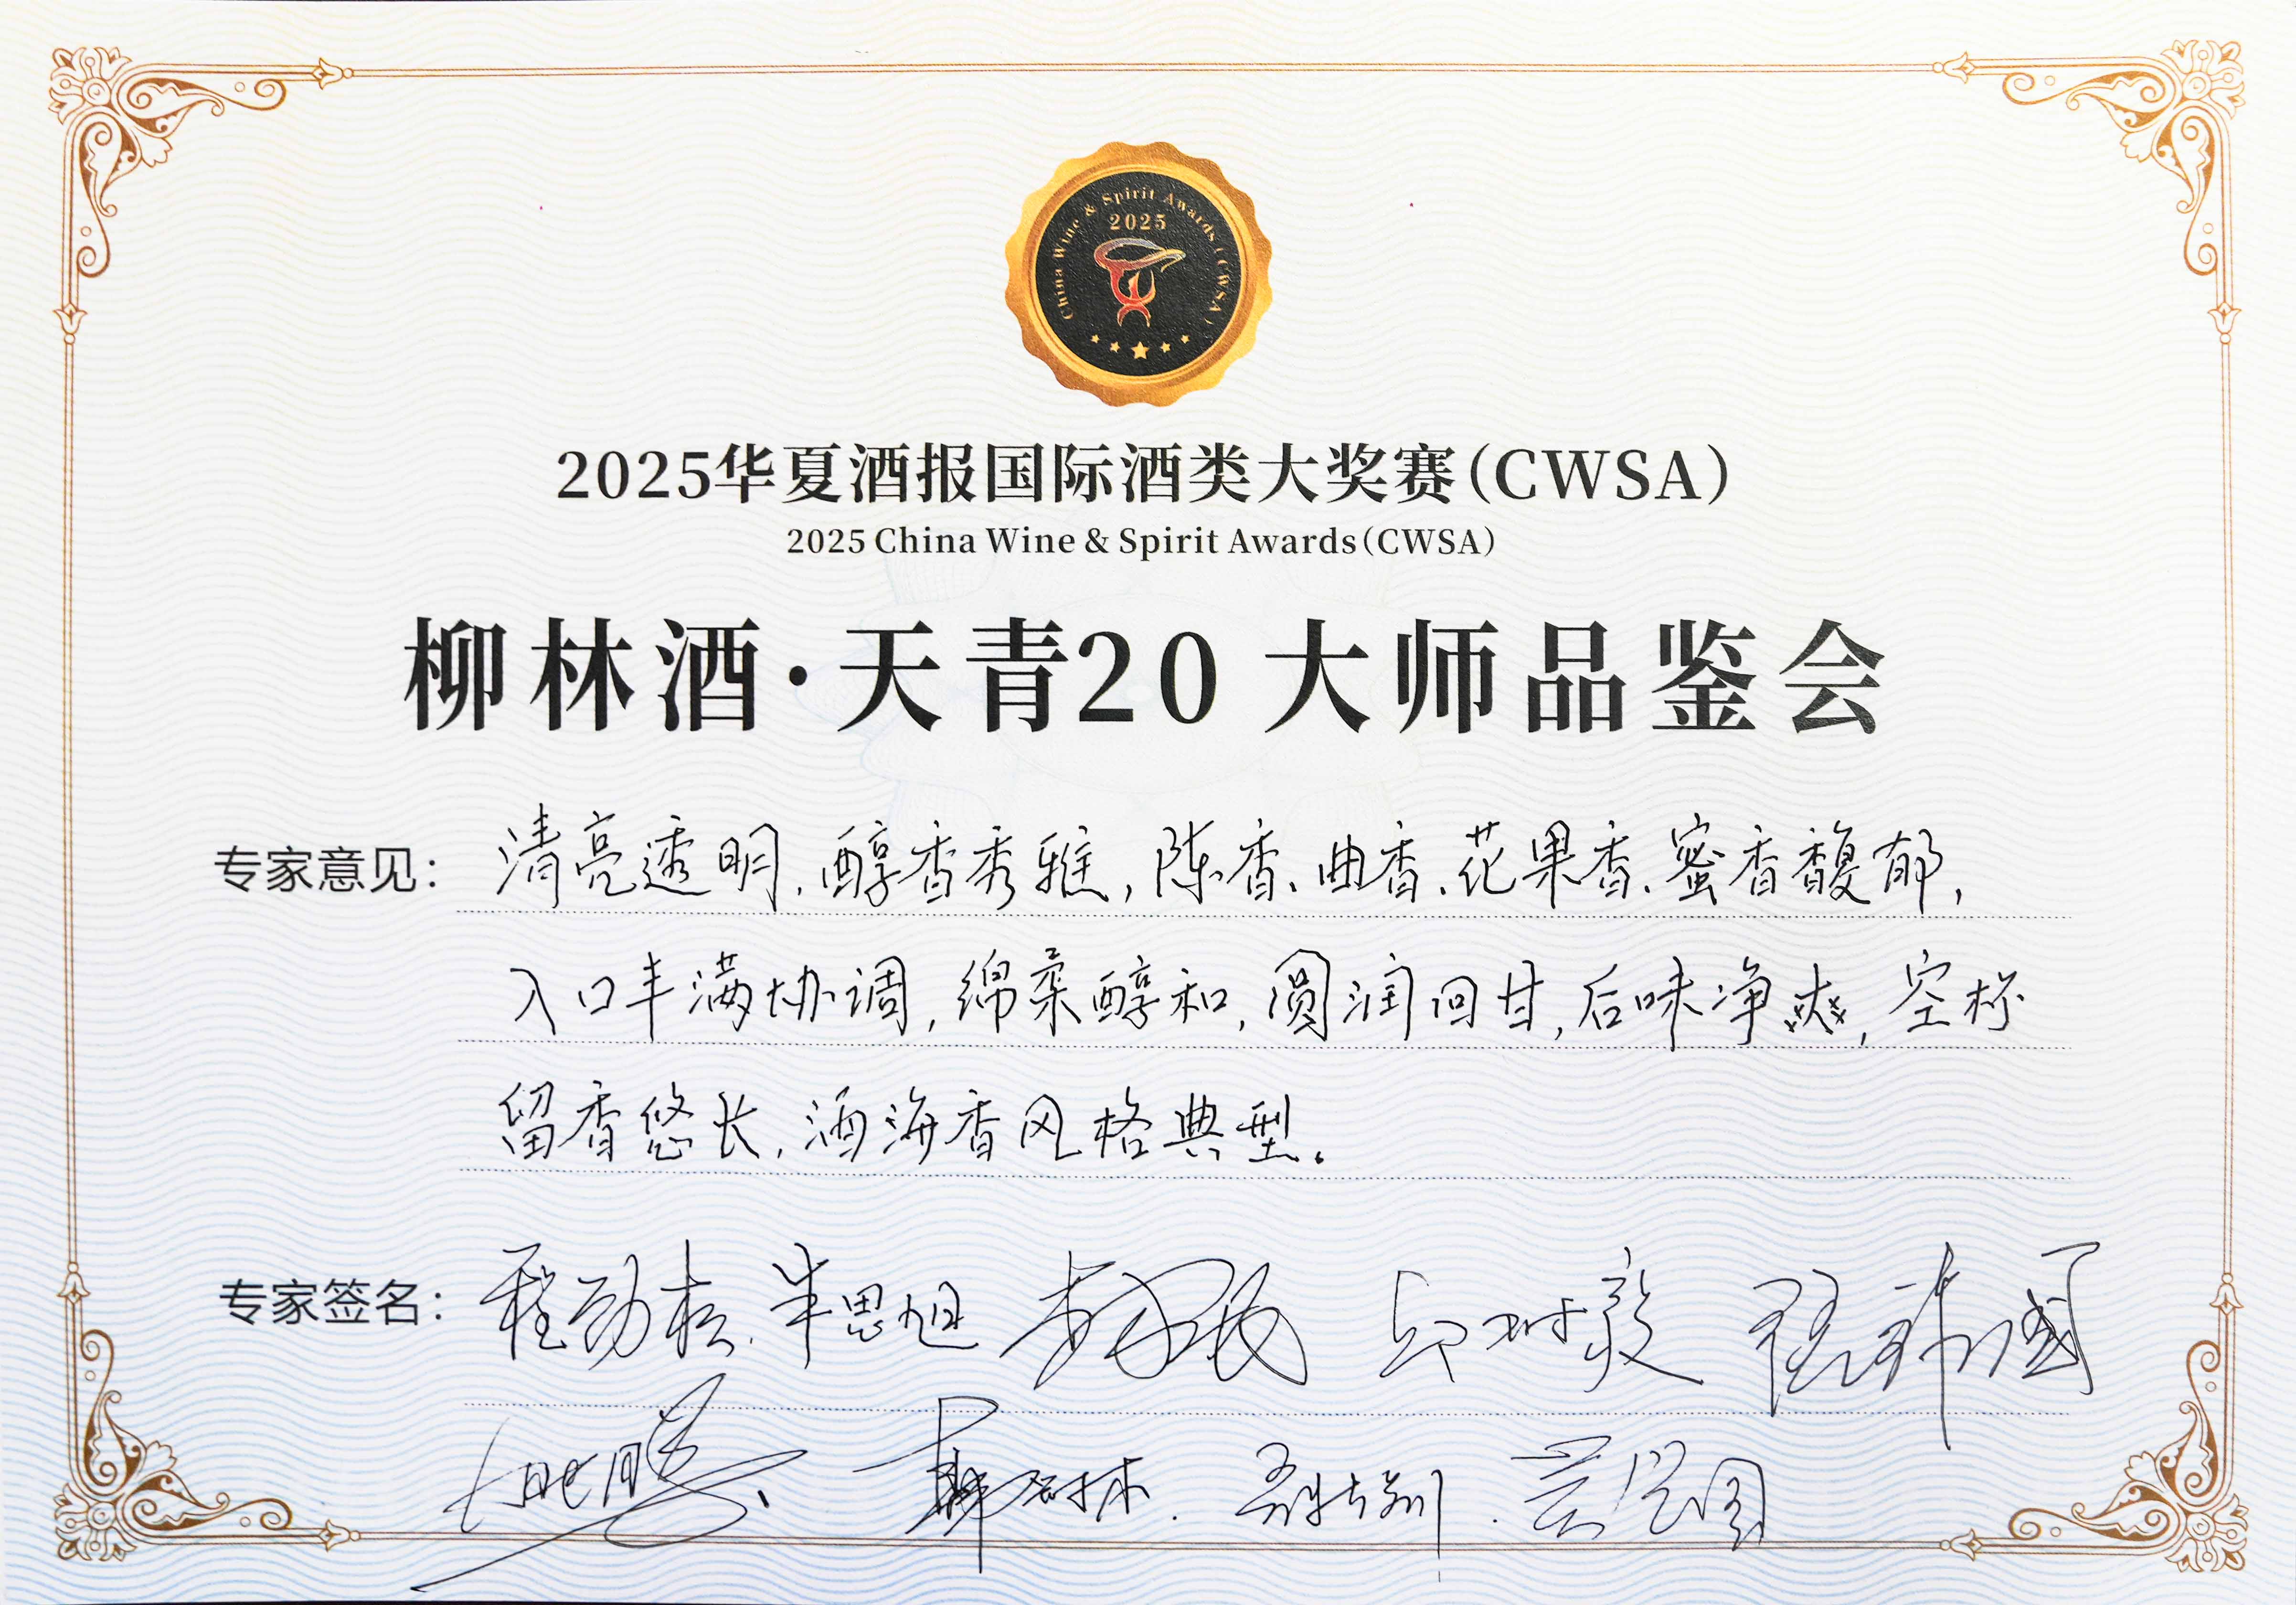 China Wine & Spirit Awards (CWSA)
2025
2025华夏酒报国际酒类大奖赛(CWSA)
2025 China Wine & Spirit Awards(CWSA)
柳林酒·天青20 大师品鉴会
专家意见: 清亮透明,醇香秀雅,陈香、曲香、花果香、蜜香馥郁,
入口丰满协调,绵柔醇和,圆润回甘,后味净爽,空杯
留香悠长,酒海香风格典型。
专家签名: 程劲松